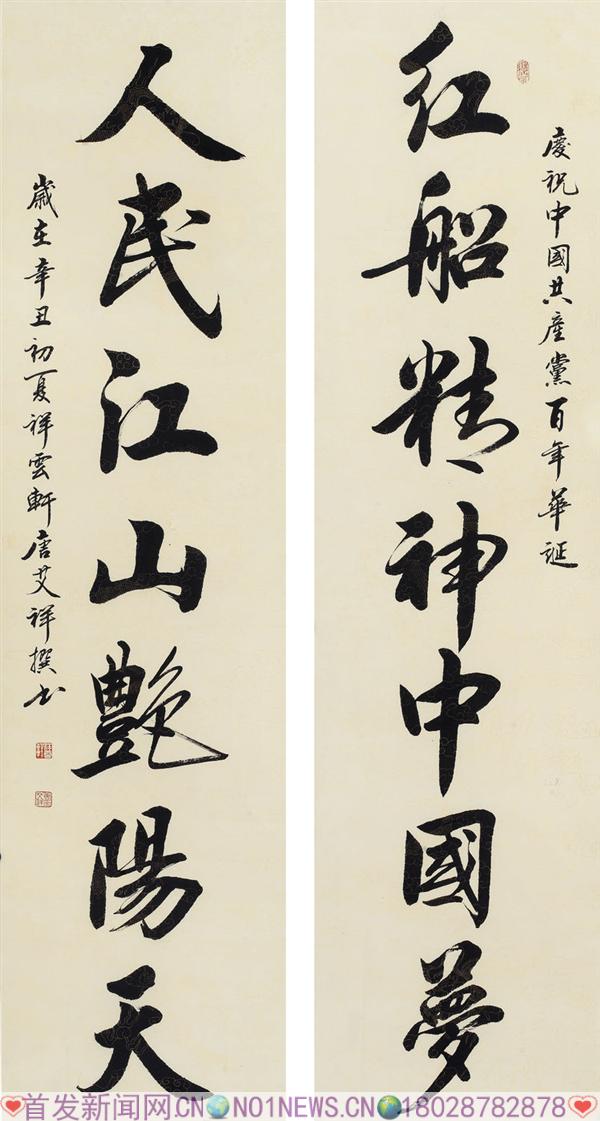 慶祝中國共產黨百年華誕
红船精神中國夢
人民江山艷陽天
歲在辛丑初夏祥雲軒唐艾祥撰书
首发新闻网.CN NO1NEWS.CN 18028782878